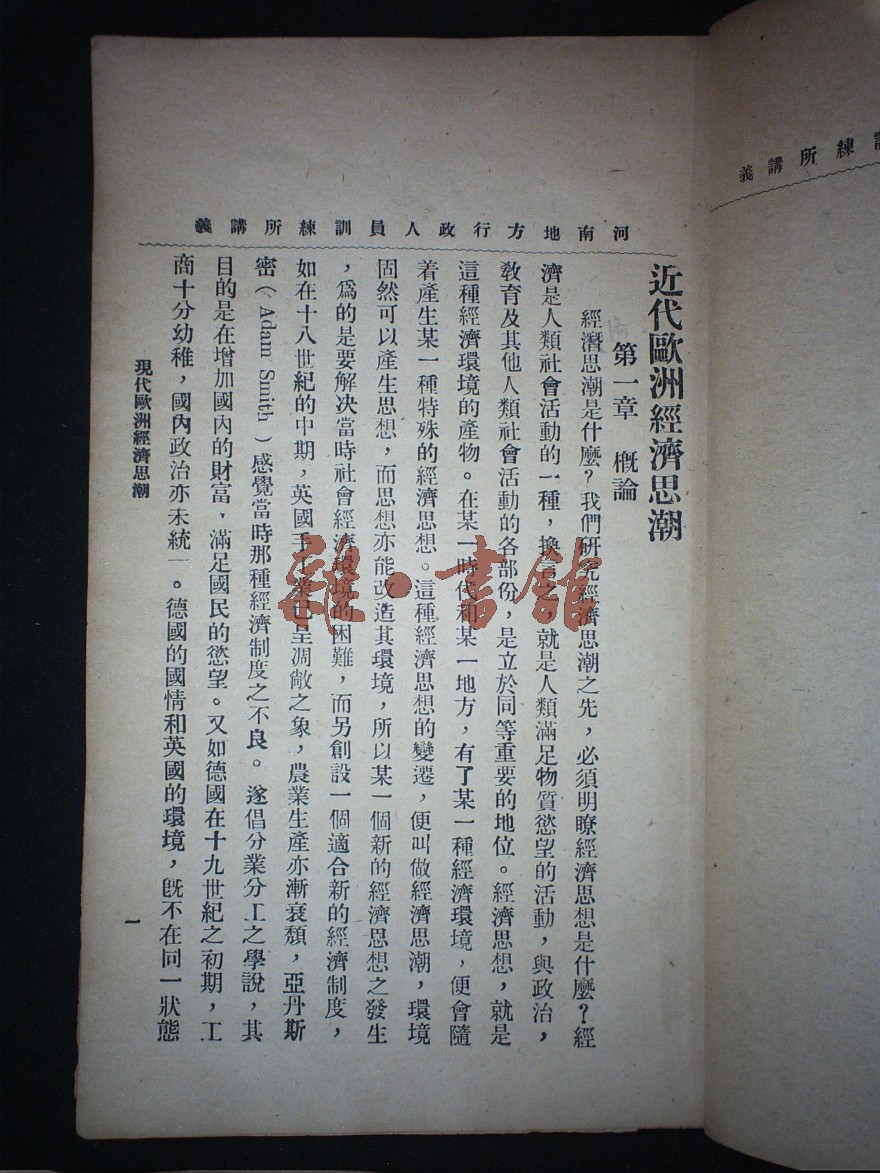 河南地方行政人員訓練所講義
近代歐洲經濟思潮
第一章 概論
經濟思潮是什麼?我們研究經濟思潮之先,必須明瞭經濟思想是什麼?經
濟是人類社會活動的一種,換言之,就是人類滿足物質慾望的活動,與政治,
敎育及其他人類社會活動的各部份,是立於同等重要的地位。經濟思想,就是
這種經濟環境的產物。在某一時代和某一地方,有了某一種經濟環境,便會隨
着產生某一種特殊的經濟思想。這種經濟思想的變遷,便叫做經濟思潮,環境
固然可以產生思想,而思想亦能改造其環境,所以某一個新的經濟思想之發生
,爲的是要解决當時社會經濟環境的困難,而另創設一個適合新的經濟制度,
如在十八世紀的中期,英國手工業已呈凋敝之象,農業生產亦漸衰頹,亞丹斯
密(Adam Smith)感覺當時那種經濟制度之不良。遂倡分業分工之學說,其
目的是在增加國內的財富,滿足國民的慾望。又如德國在十九世紀之初期,工
商十分幼稚,國內政治亦未統一。德國的國情和英國的環境,旣不在同一狀態
現代歐洲經濟思潮
一
練所講義
雜·書館